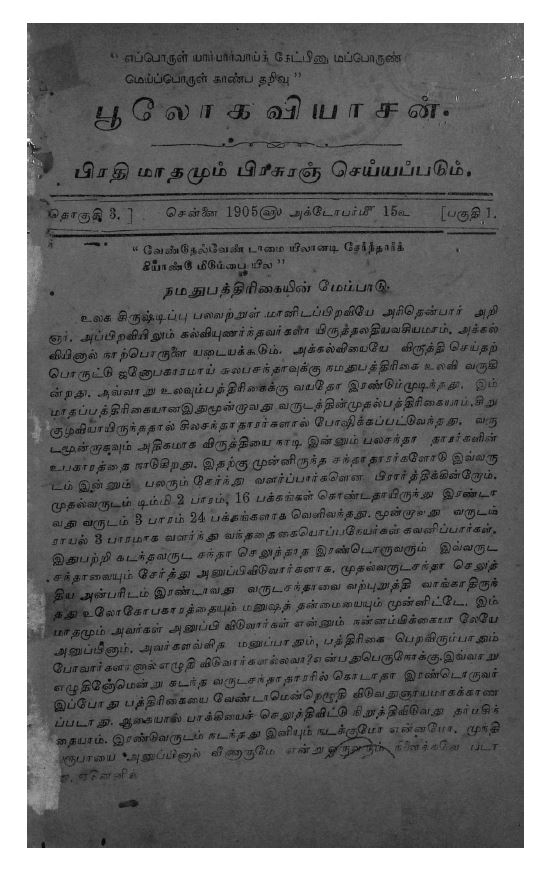 “ எப்பொருள் யார்யார்வாய்க் கேட்பினு மப்பொருண்
மெய்ப்பொருள் காண்ப தறிவு ”
பூலோகவியாசன்.
பிரதி மாதமும் பிரசுரஞ் செய்யப்படும்.
தொகுதி 3. ] சென்னை 1905௵ அக்டோபர்௴ 15௳ [பகுதி 1.
“ வேண்டுதல்வேண் டாமை யிலானடி சேர்ந்தார்க்
கியாண்டு மிடும்பை யில ”
நமதுபத்திரிகையின் மேம்பாடு.
உலக சிருஷ்டிப்பு பலவற்றுள் மானிடப்பிறவியே அரிதென்பார் அறி
ஞர். அப்பிறவியிலும் கல்வியுணர்ந்தவர்களா யிருத்தலதியவசியமாம். அக்கல்
வியினால் நாற்பொருளை யடையக்கூடும். அக்கல்வியையே விருத்தி செய்தற்
பொருட்டு ஜனோபகாரமாய் சுலபசந்தாவுக்கு நமதுபத்திரிகை உலவி வருகி
ன்றது. அவ்வாறு உலவும்பத்திரிகைக்கு வயதோ இரண்டும்முடிந்தது. இம்
மாதப்பத்திரிகையானஇதுமூன்றாவது வருடத்தின்முதல்பத்திரிகையாம்.சிறு
குழவியாயிருந்ததால் சிலசந்தாதாரர்களால் போஷிக்கப்பட்டுவந்தது. வரு
டமூன்றாகவும் அதிகமாக விருத்தியை நாடி இன்னும் பலசந்தா தாரர்களின்
உபகாரத்தை நாடுகிறது. இதற்கு முன்னிருந்த சந்தாதாரர்களோடு இவ்வரு
டம் இன்னும் பலரும் சேர்ந்து வளர்ப்பார்களென பிரார்த்திக்கின்றோம்.
முதல்வருடம் டிம்மி 2 பாரம், 16 பக்கங்கள் கொண்டதாயிருந்து இரண்டா
வது வருடம் 3 பாரம் 24 பக்தங்களாக வெளிவந்தது. மூன்றாவது வருடம்
ராயல் 3 பாரமாக வளர்ந்து வந்ததை கையொப்பநேயர்கள் கவனிப்பார்கள்.
இதுபற்றி கடந்தவருட சந்தா செலுத்தாத இரண்டொருவரும் இவ்வருட
சந்தாவையும் சேர்த்து அனுப்பிவிடுவார்களாக. முதல்வருடசந்தா செலுத்
திய அன்பரிடம் இரண்டாவது வருடசந்தாவை வற்புறுத்தி வாங்காதிருந்
தது உலோகோபகாரத்தையும் மனுஷத் தன்மையையும் முன்னிட்டே. இம்
மாதமும் அவர்கள் அனுப்பி விடுவார்கள் என்னும் நன்னம்பிக்கையா லேயே
அனுப்பினோம். அவர்களவ்வித மனுப்பாதும், பத்திரிகை பெறவிரும்பாதும்
போவார்களானால் எழுதி விடுவார்களல்லவா?என்பதுபெருநோக்கு.இவ்வாறு
எழுதினோமென்று கடந்த வருடசந்தாதாரரில் கொடாதா இரண்டொருவர்
இப்போது பத்திரிகையை வேண்டாமென்றெழுதி விடுவதுஞாயமாகக்காண
ப்படாது. ஆகையால் பாக்கியைச் செலுத்திவிட்டு நிறுத்திவிடுவது தர்மசிந்
தையாம். இரண்டுவருடம் நடந்தது இனியும் நடக்குமோ என்னமோ, முந்தி
ரூபாயை அனுப்பினால் வீணாகுமே என்று ஒருவரும் நினைக்கவே படா